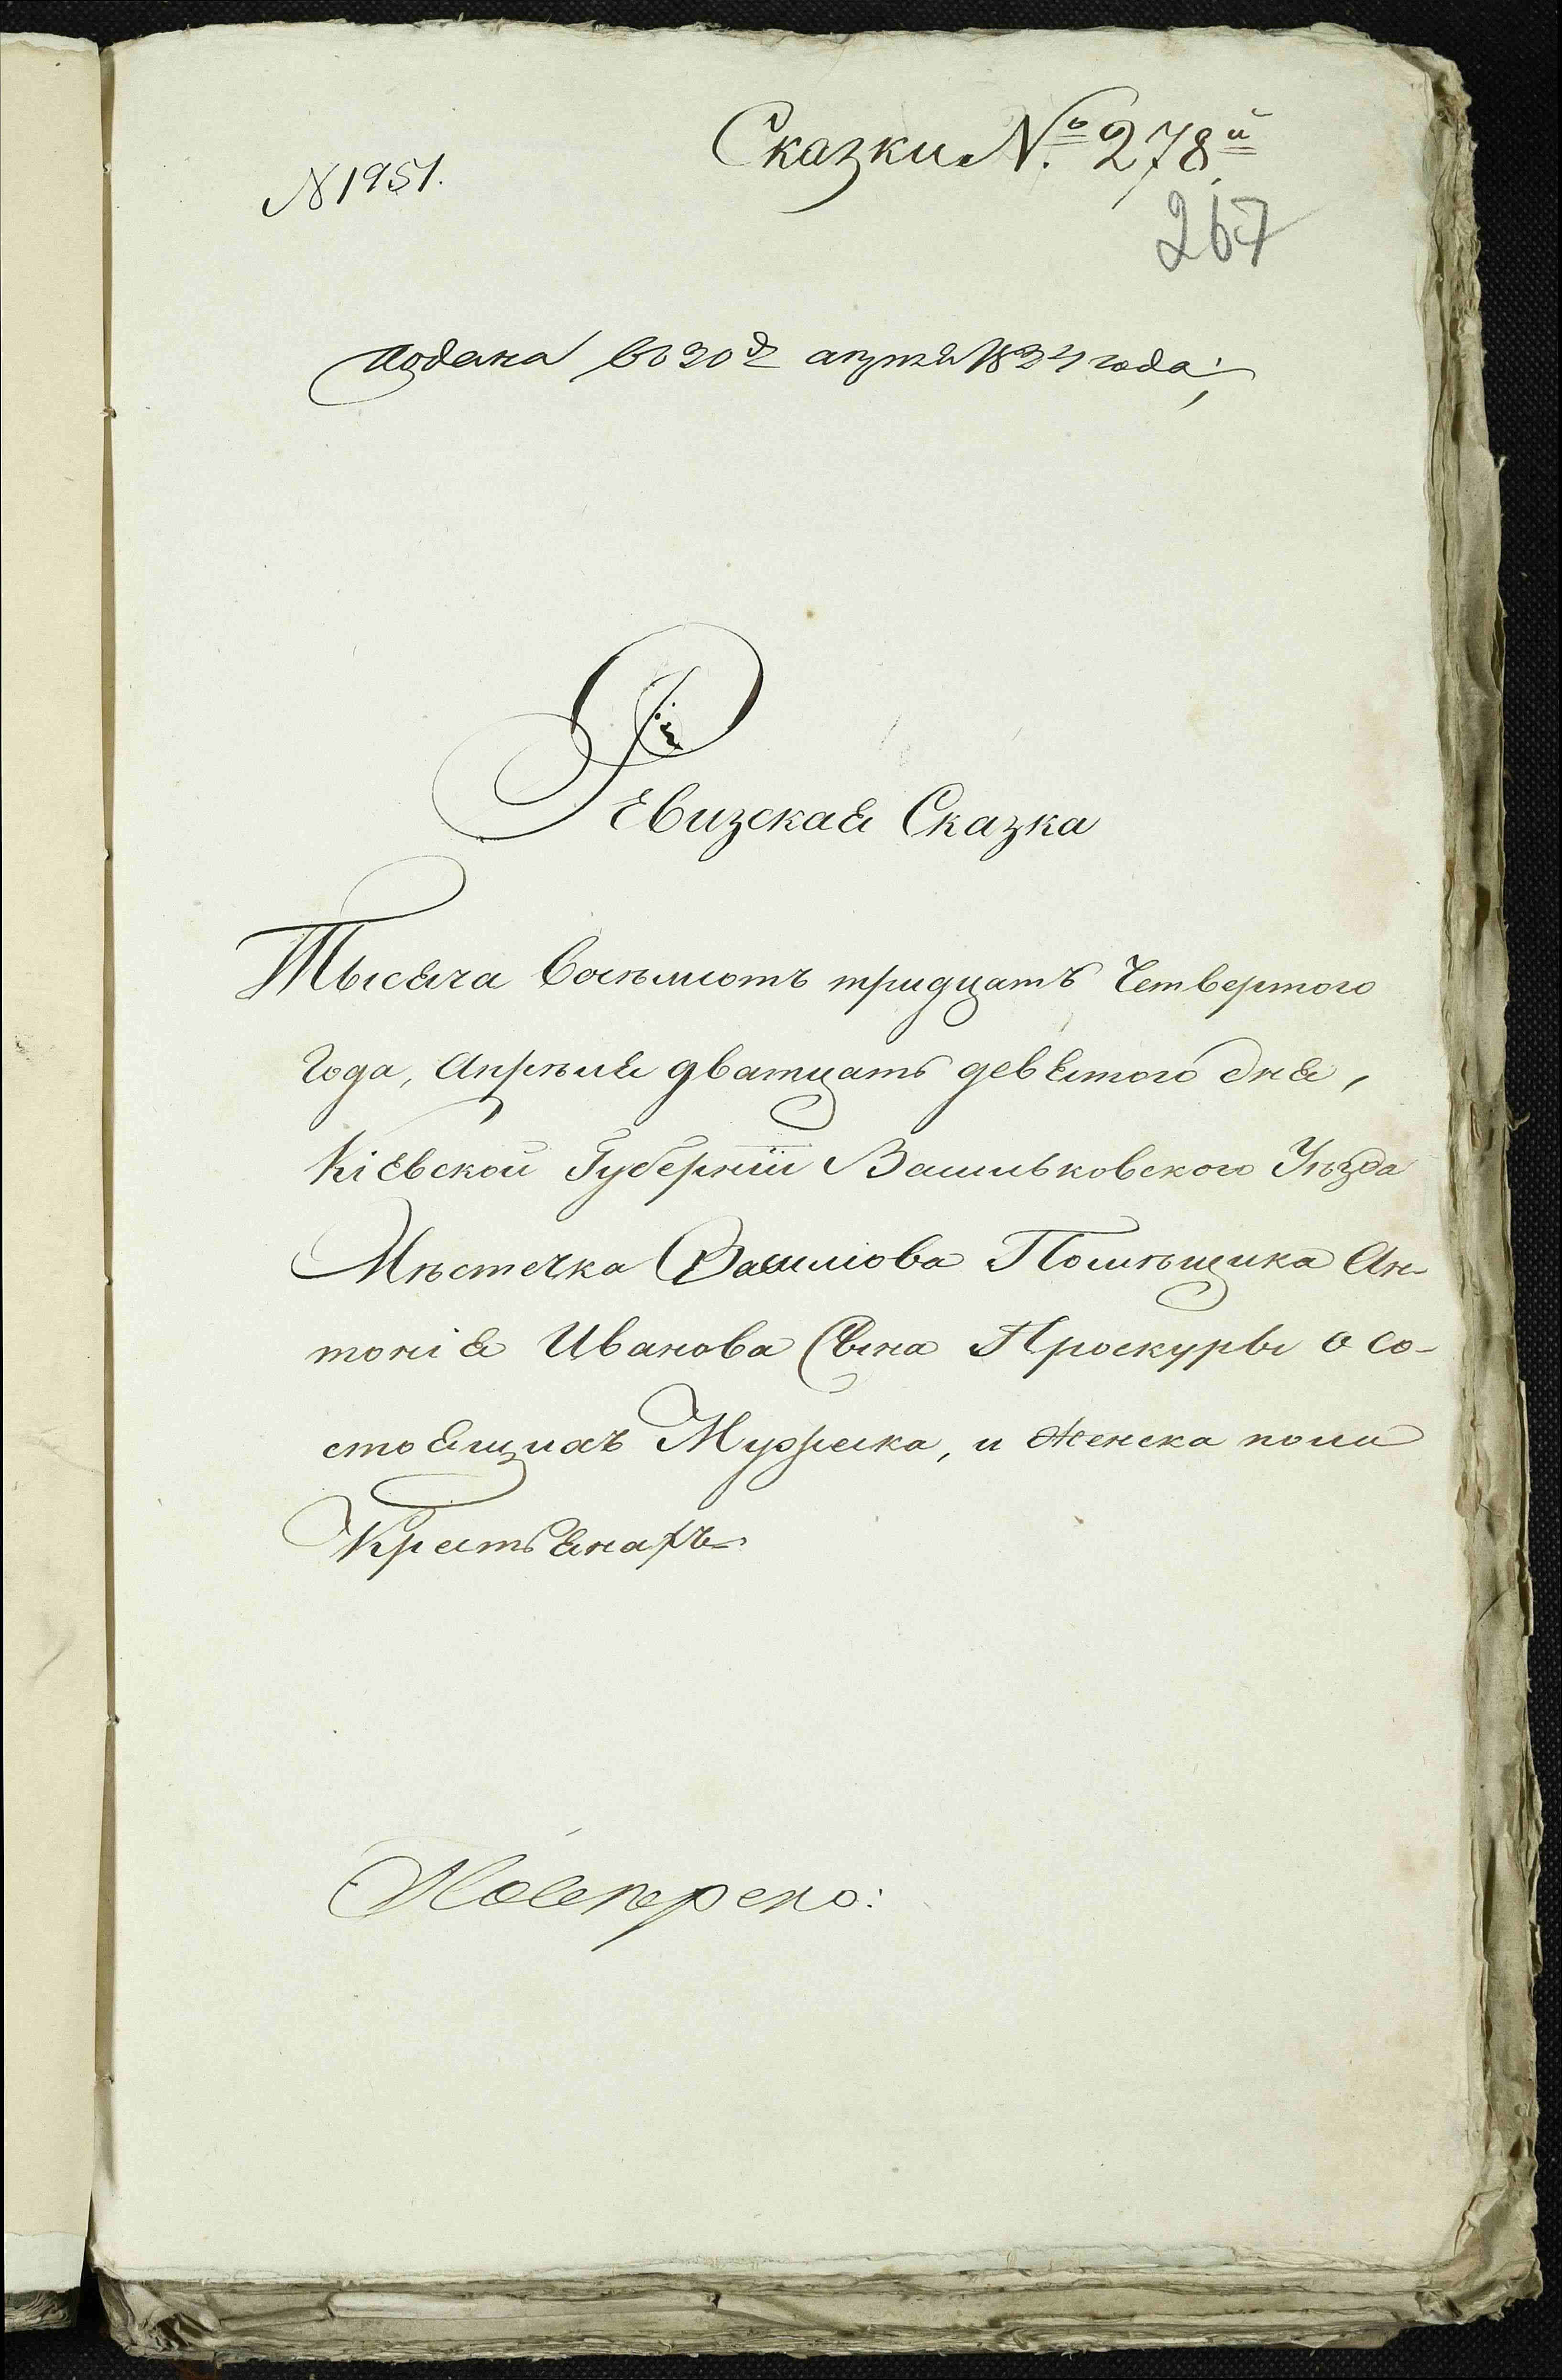 Сказки №. 278й
N 1951.
267
Подана въ 30д апреля 1834 года;
Ревизская Сказка
Тысяча восѣмсотъ тридцать Четвертого
Года, Апрѣля дватцать девятого дня,
Кіевской Губерніи Васильковского Уѣзда
Мѣстечка Помѣщика Ан-
тонія Иванова Сына Проскуры о со-
стоящихъ Мужеска, и Женска пола
Крестьянахъ